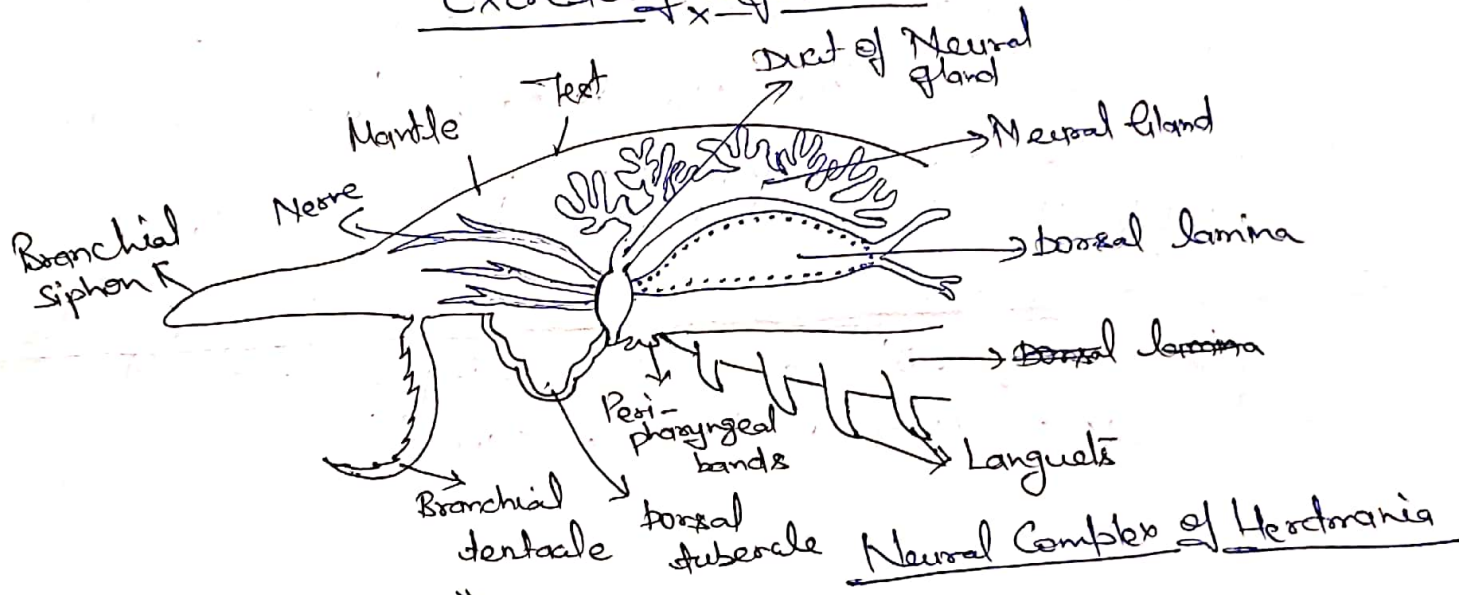 Duct of Neural
gland
Test
Mantle
Neural Gland
Nerve
Branchial
siphon
Dorsal lamina
Dorsal lamina
Peri-
pharyngeal
bands
Languets
Branchial
tentacle
Dorsal
tubercle
Neural Complex of Herdmania